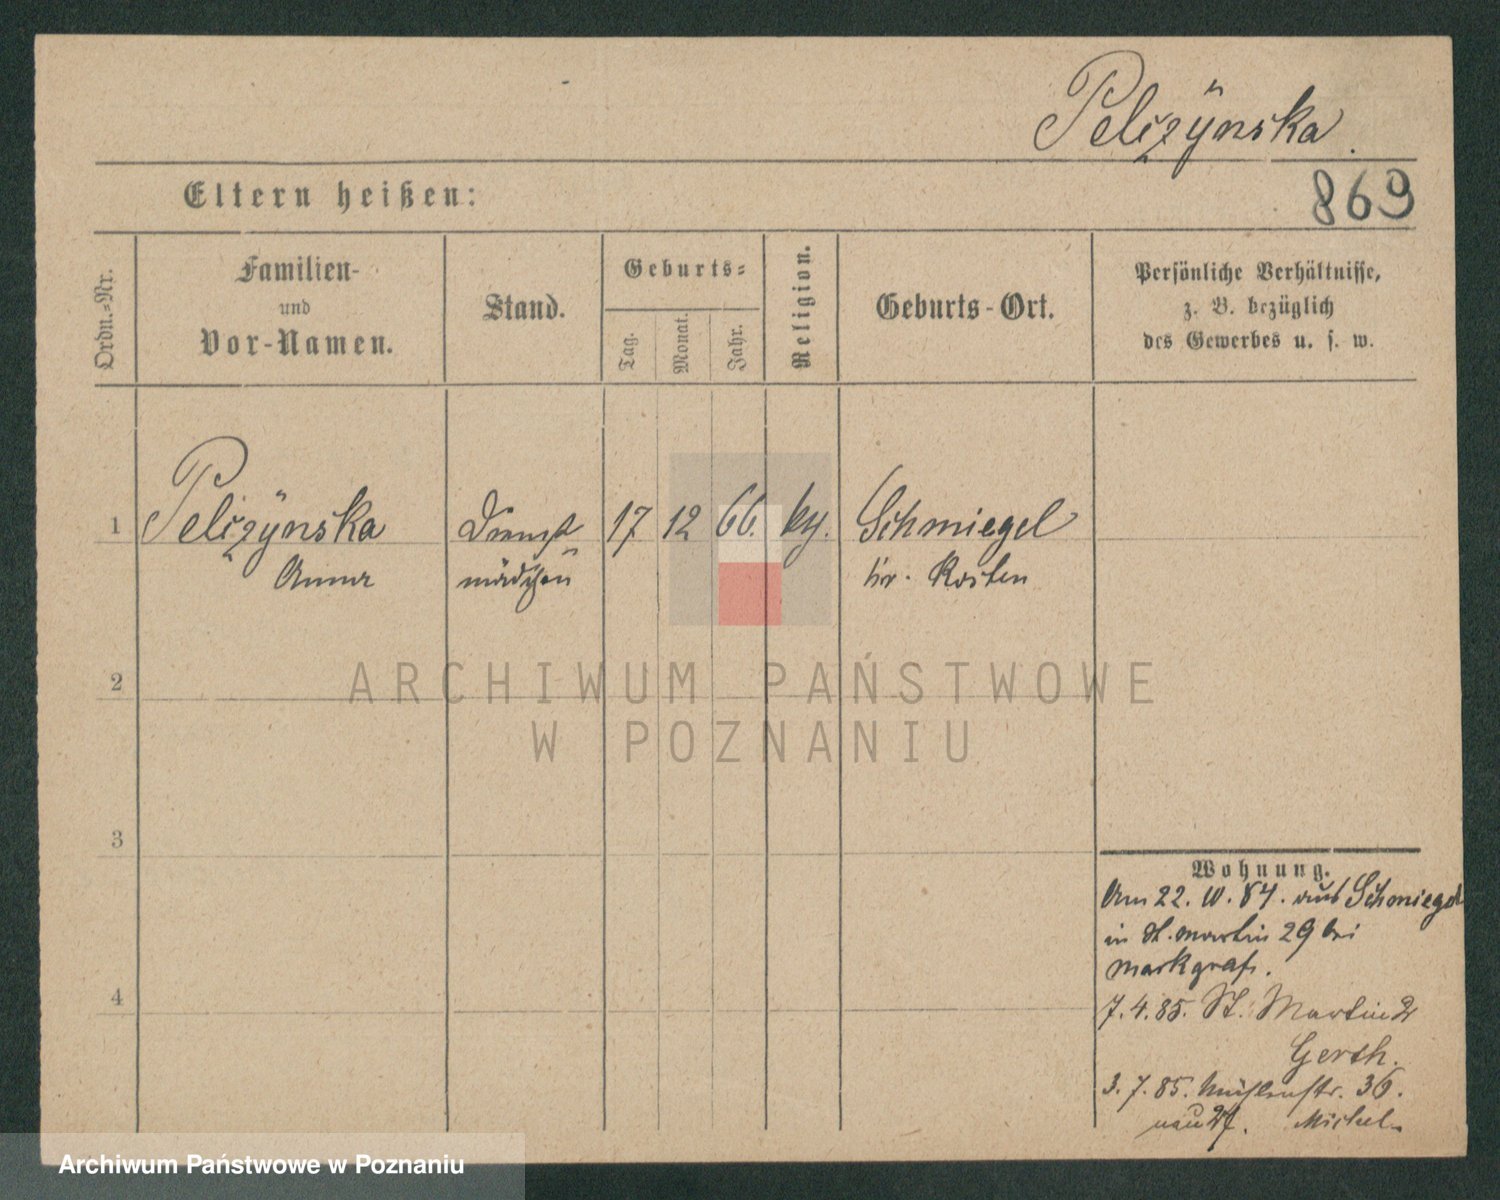 Pelizÿnska.
869
Eltern heißen:
Ordn.-Nr.
Familien-
und
Vor-Namen.
Stand.
Geburts-
Tag.
Monat.
Jahr.
Religion.
Geburts-Ort.
Persönliche Verhältnisse,
z. B. bezüglich
des Gewerbes u. s. w.
1 Pelizÿnska Dienst 17 12 66. ky. Schmiegel
Anna mädchen kr. Kosten
2
ARCHIWUM PAŃSTWOWE
W POZNANIU
3
4
Wohnung.
Am 22. 10. 84. aus Schmiegel
in St. Martin 29 bei
Markgraf.
7. 4. 85. St. Martin 2
Gersh.
3. 7. 85. Mühlenstr. 36.
Michel.
Archiwum Państwowe w Poznaniu